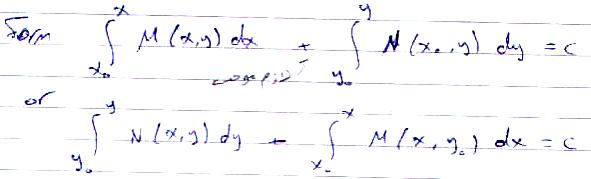 Form ∫_{x₀}^{x} M(x,y) dx + ∫_{y₀}^{y} N(x₀,y) dy = c
لازم موجب
or
∫_{y₀}^{y} N(x,y) dy + ∫_{x₀}^{x} M(x,y₀) dx = c